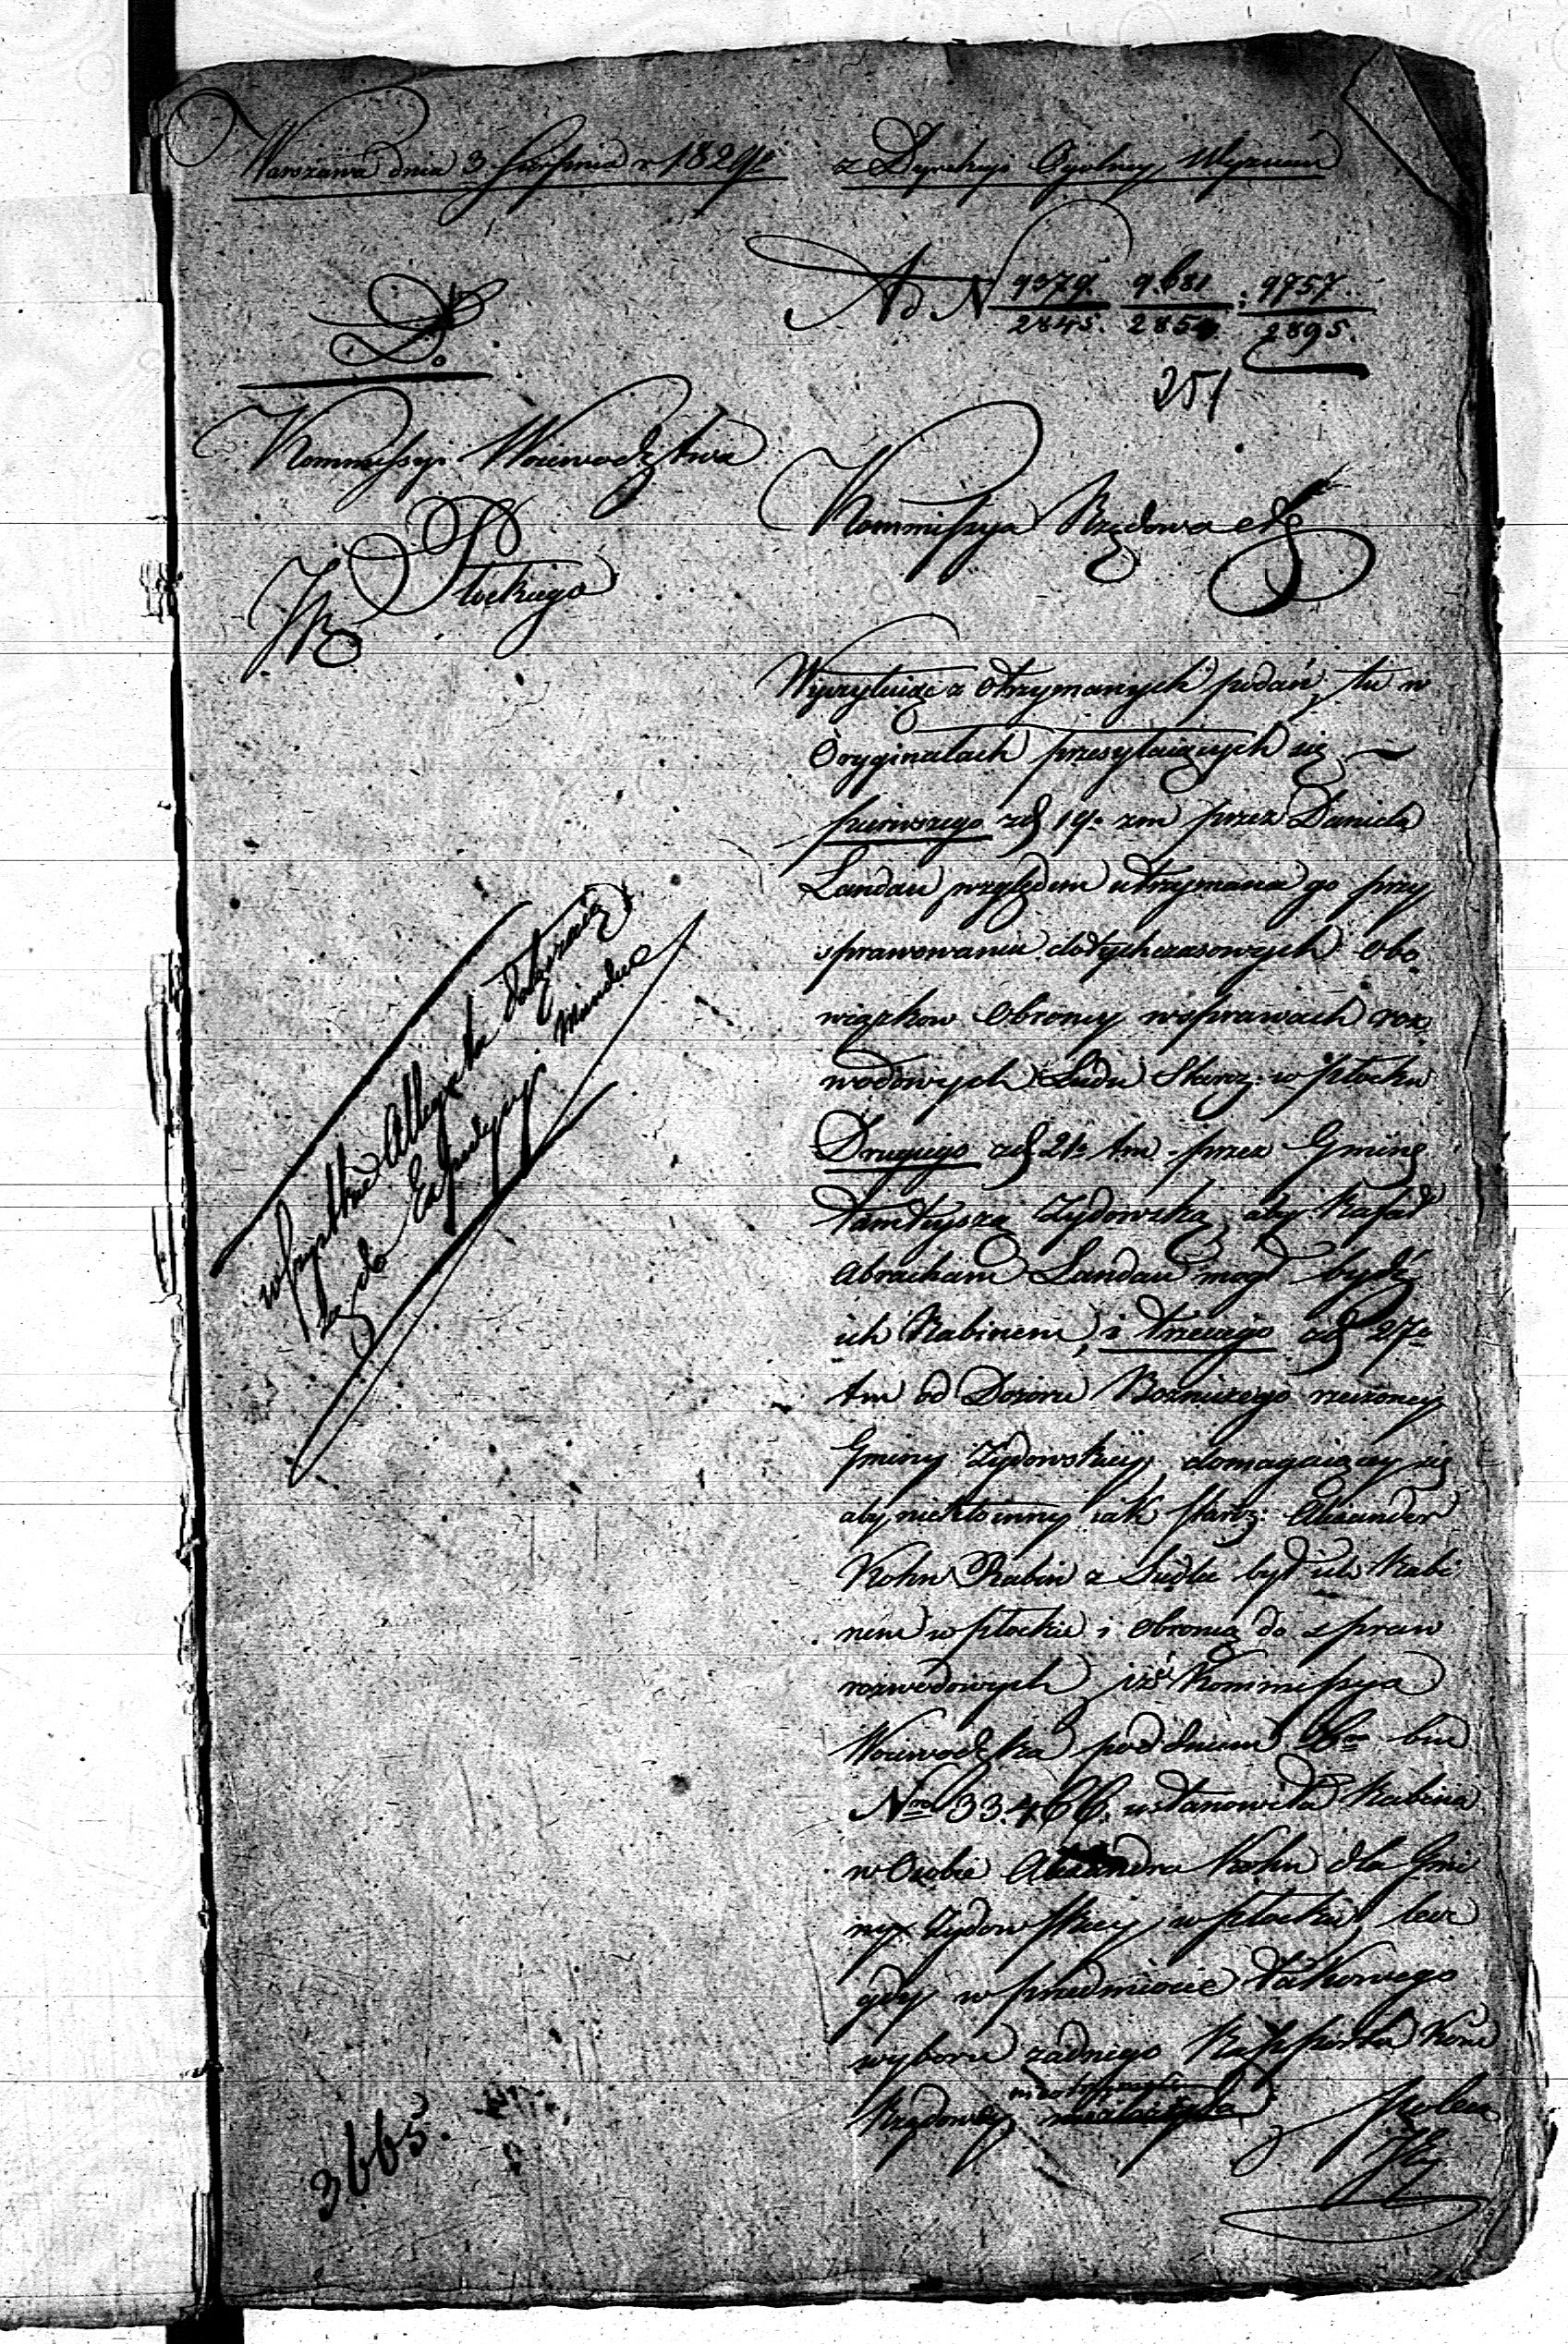 Warszawa dnia 3 Sierpnia r. 1829.
z Dyrekcyi Ogólney Wyznań
Ad N 9379/2845. 9681/285 ; 9757./2895.
251
Do
Kommissyi Woiewodztwa
Płockiego
Kommissya Rządowa etc
Wyczytuiąc z otrzymanych podań, tu w
Oryginałach przesyłaiących się —
pierwszego z d 19. zm przez Daniela
Landau względem utrzymania go przy
sprawowaniu dotychczasowych obo
wiązkow Obroncy w sprawach roz
wodowych Ludu Staroz: w Płocku
Drugiego z d 21. tm. przez Gminę
tamteyszą Żydowską, aby Rafał
Abraham Landau mogł bydź
ich Rabinem, i trzeciego z d 27.
tm od Dozoru Bozniczego rzeczoney
Gminy Żydowskiey, domagaiącey się
aby nie kto inny iak Staroz: Alexander
Kohn Rabin z był ich Rabi
nem w Płocku i Obroncą do spraw
rozwodowych, iż Kommissya
Woiewodzka pod dniem bm
Nro 33.466. ustanowiła Rabina
w Osobie Alexandra Kohn dla Gmi
ny Żydowskiey w Płocku, lecz
gdy w przedmiocie takowego
wyboru żadnego Rapportu Kom
Rządowey nie złożyła
wszystkie Allegata dołączaią
się do Expedycyi.
3665.